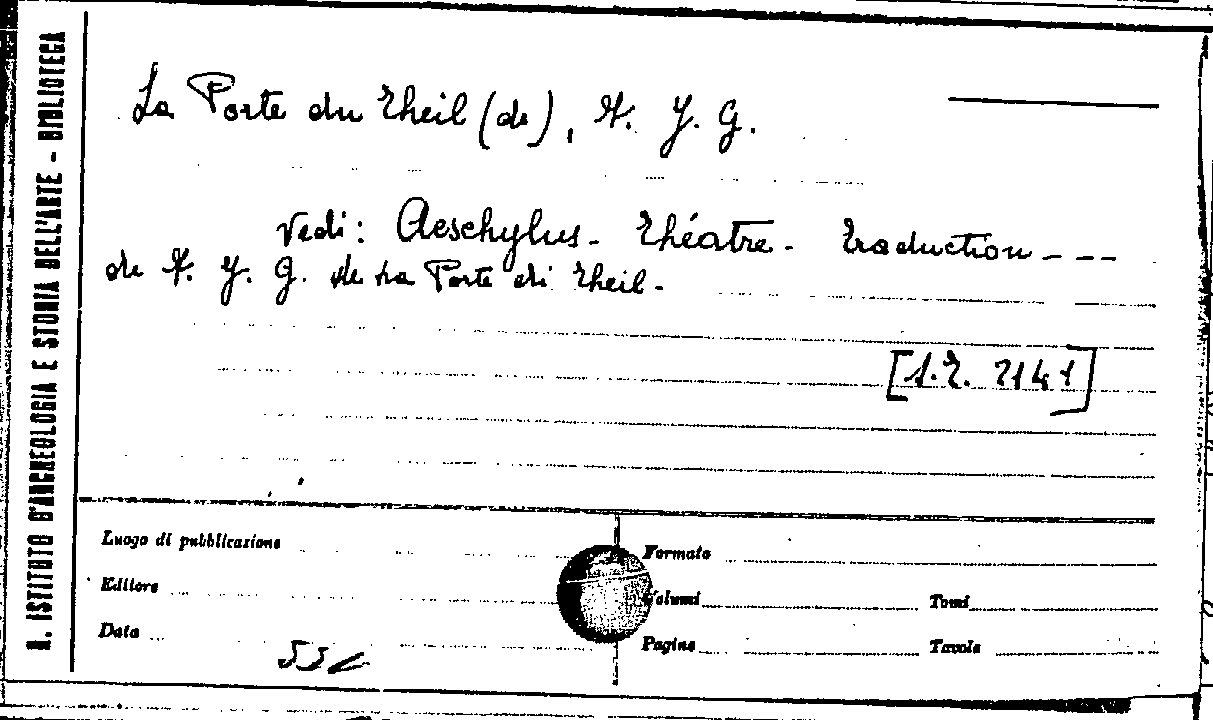 R. ISTITUTO D'ARCHEOLOGIA E STORIA DELL'ARTE - BIBLIOTECA
La Porte du Theil (de), F. J. G.
Vedi: Aeschylus - Théatre - Traduction - - -
de F. J. G. de La Porte di Theil -
[1.Z. 2141]
Luogo di pubblicazione
Editore
Data
Formato
Volumi Tomi
Pagine Tavole